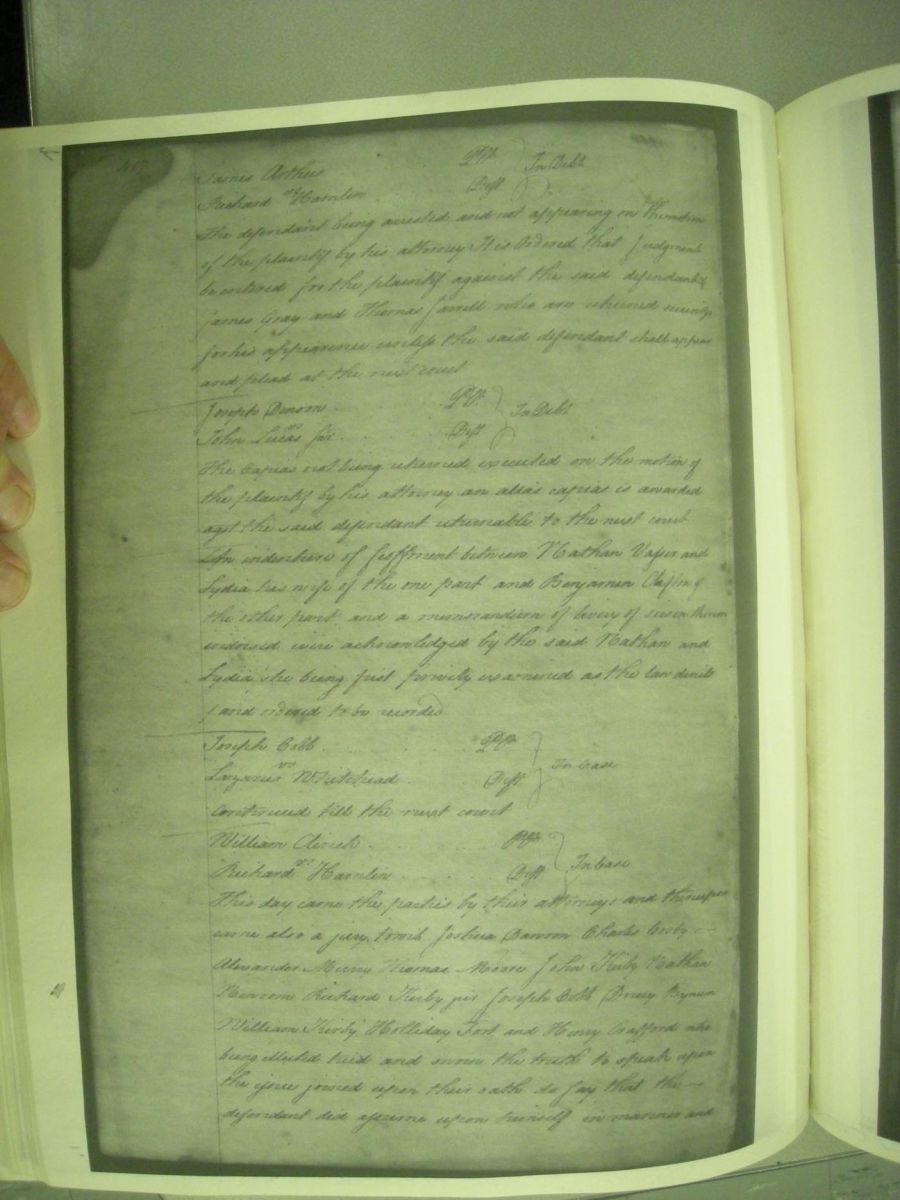 James Arthur Plt } In Debt
vs
Richard Hamlin Deft
The defendant being arrested and not appearing on the motion
of the plaintif by his attorney It is Ordered that Judgment
be entered for the plaintif against the said defendant &
James Gray and Thomas Jarrell who are returned security
for his appearance unless the said defendant shall appear
and plead at the next court
Joseph Denson Plt } In Debt
vs
John Lucas Jur Deft
The Capias not being returned executed on the motion of
the plaintif by his attorney an alias capias is awarded
agst the said defendant returnable to the next court
An indenture of feoffment between Nathan Vasser and
Lydia his wife of the one part and Benjamin of
the other part and a memorandum of livery of seisin thereon
indorsed were acknowledged by the said Nathan and
Lydia she being first privily examined as the law directs
) and ordered to be recorded
Joseph Cobb Plt } In Case
vs
Lazarus Whitehead Deft
Continued till the next court
William Clinch Plt } In Case
vs
Richard Hamlin Deft
This day came the parties by their attorneys and thereupon
came also a jury towit Joshua Dawson Charles Cosby
Alexander Murry Thomas Moore John Kirby Nathan
Richard Kirby jur Joseph Cobb Drury Bynum
William Kirby Holliday Fort and Henry Crafford who
being elected tried and sworn the truth to speak upon
the issue joined upon their oath do say that the
defendant did assume upon himself in manner and